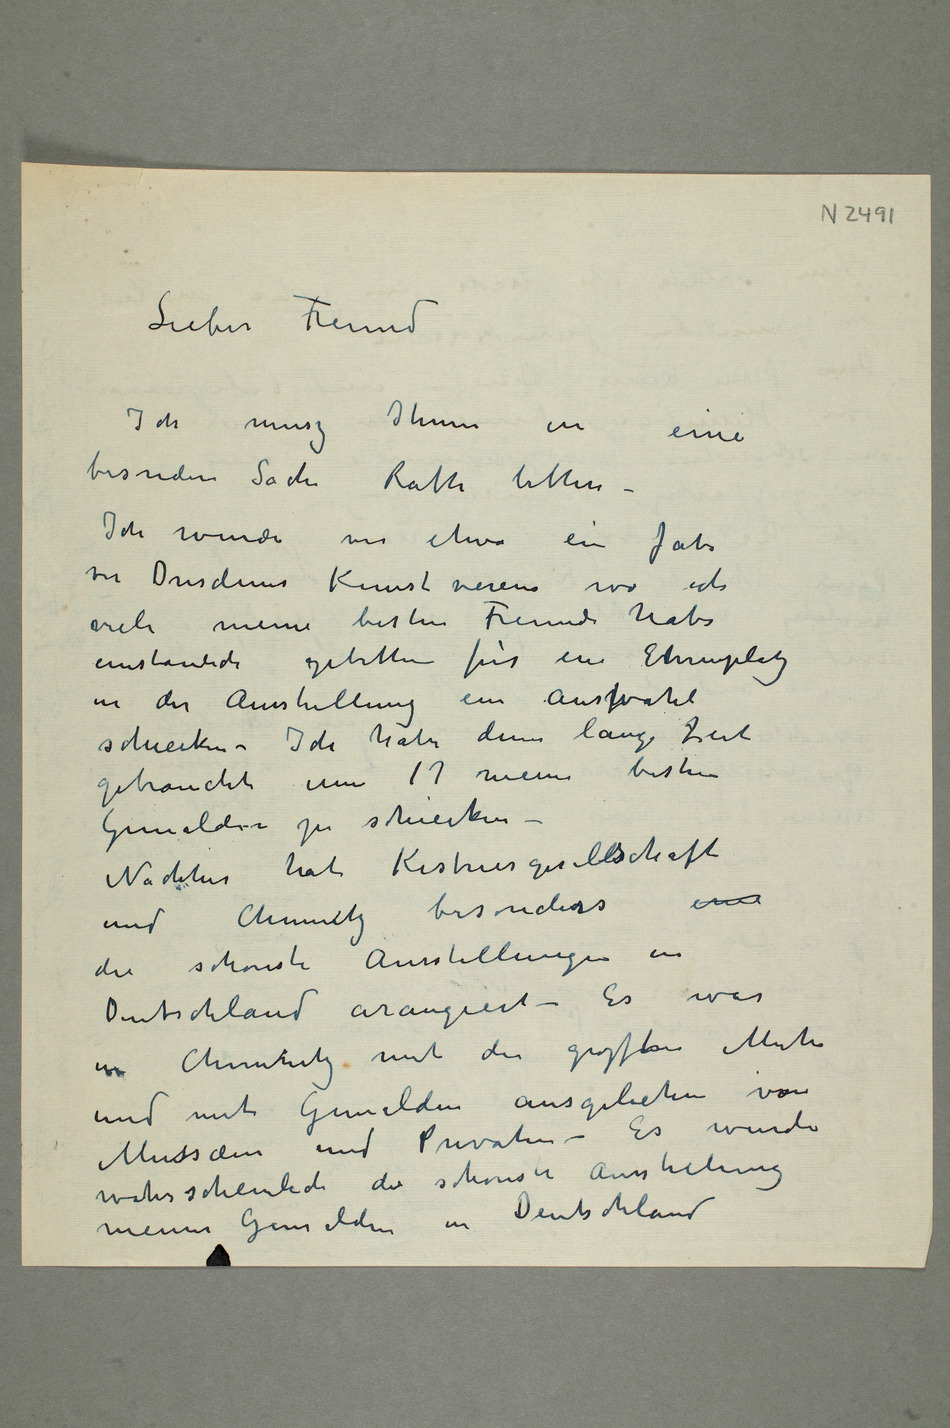 N 2491
Lieber Freund
Ich musz Ihnen in eine
besondere Sache Rath bitten –
Ich wurde vor etwa ein Jahr
von Dresdener Kunstverein wo ich
viele meine besten Freunde habe
inständich gebitten für ein Ehrenplatz
in der Ausstellung ein Auswahl
schicken – Ich habe denn lange Zeit
gebraucht um 17 meine besten
Gemälden zu schicken –
Nachher hat Kestnergesellschaft
und Chemnitz besonders eine
die schönste Ausstellungen in
Deutschland arangiert – Es war
in Chemnitz mit die größten Mühe
und mit Gemälden ausgeliehen von
Mussæen und Privaten – Es wurde
wahrscheinlich die schönste Ausstellung
meiner Gemälden in Deutschland